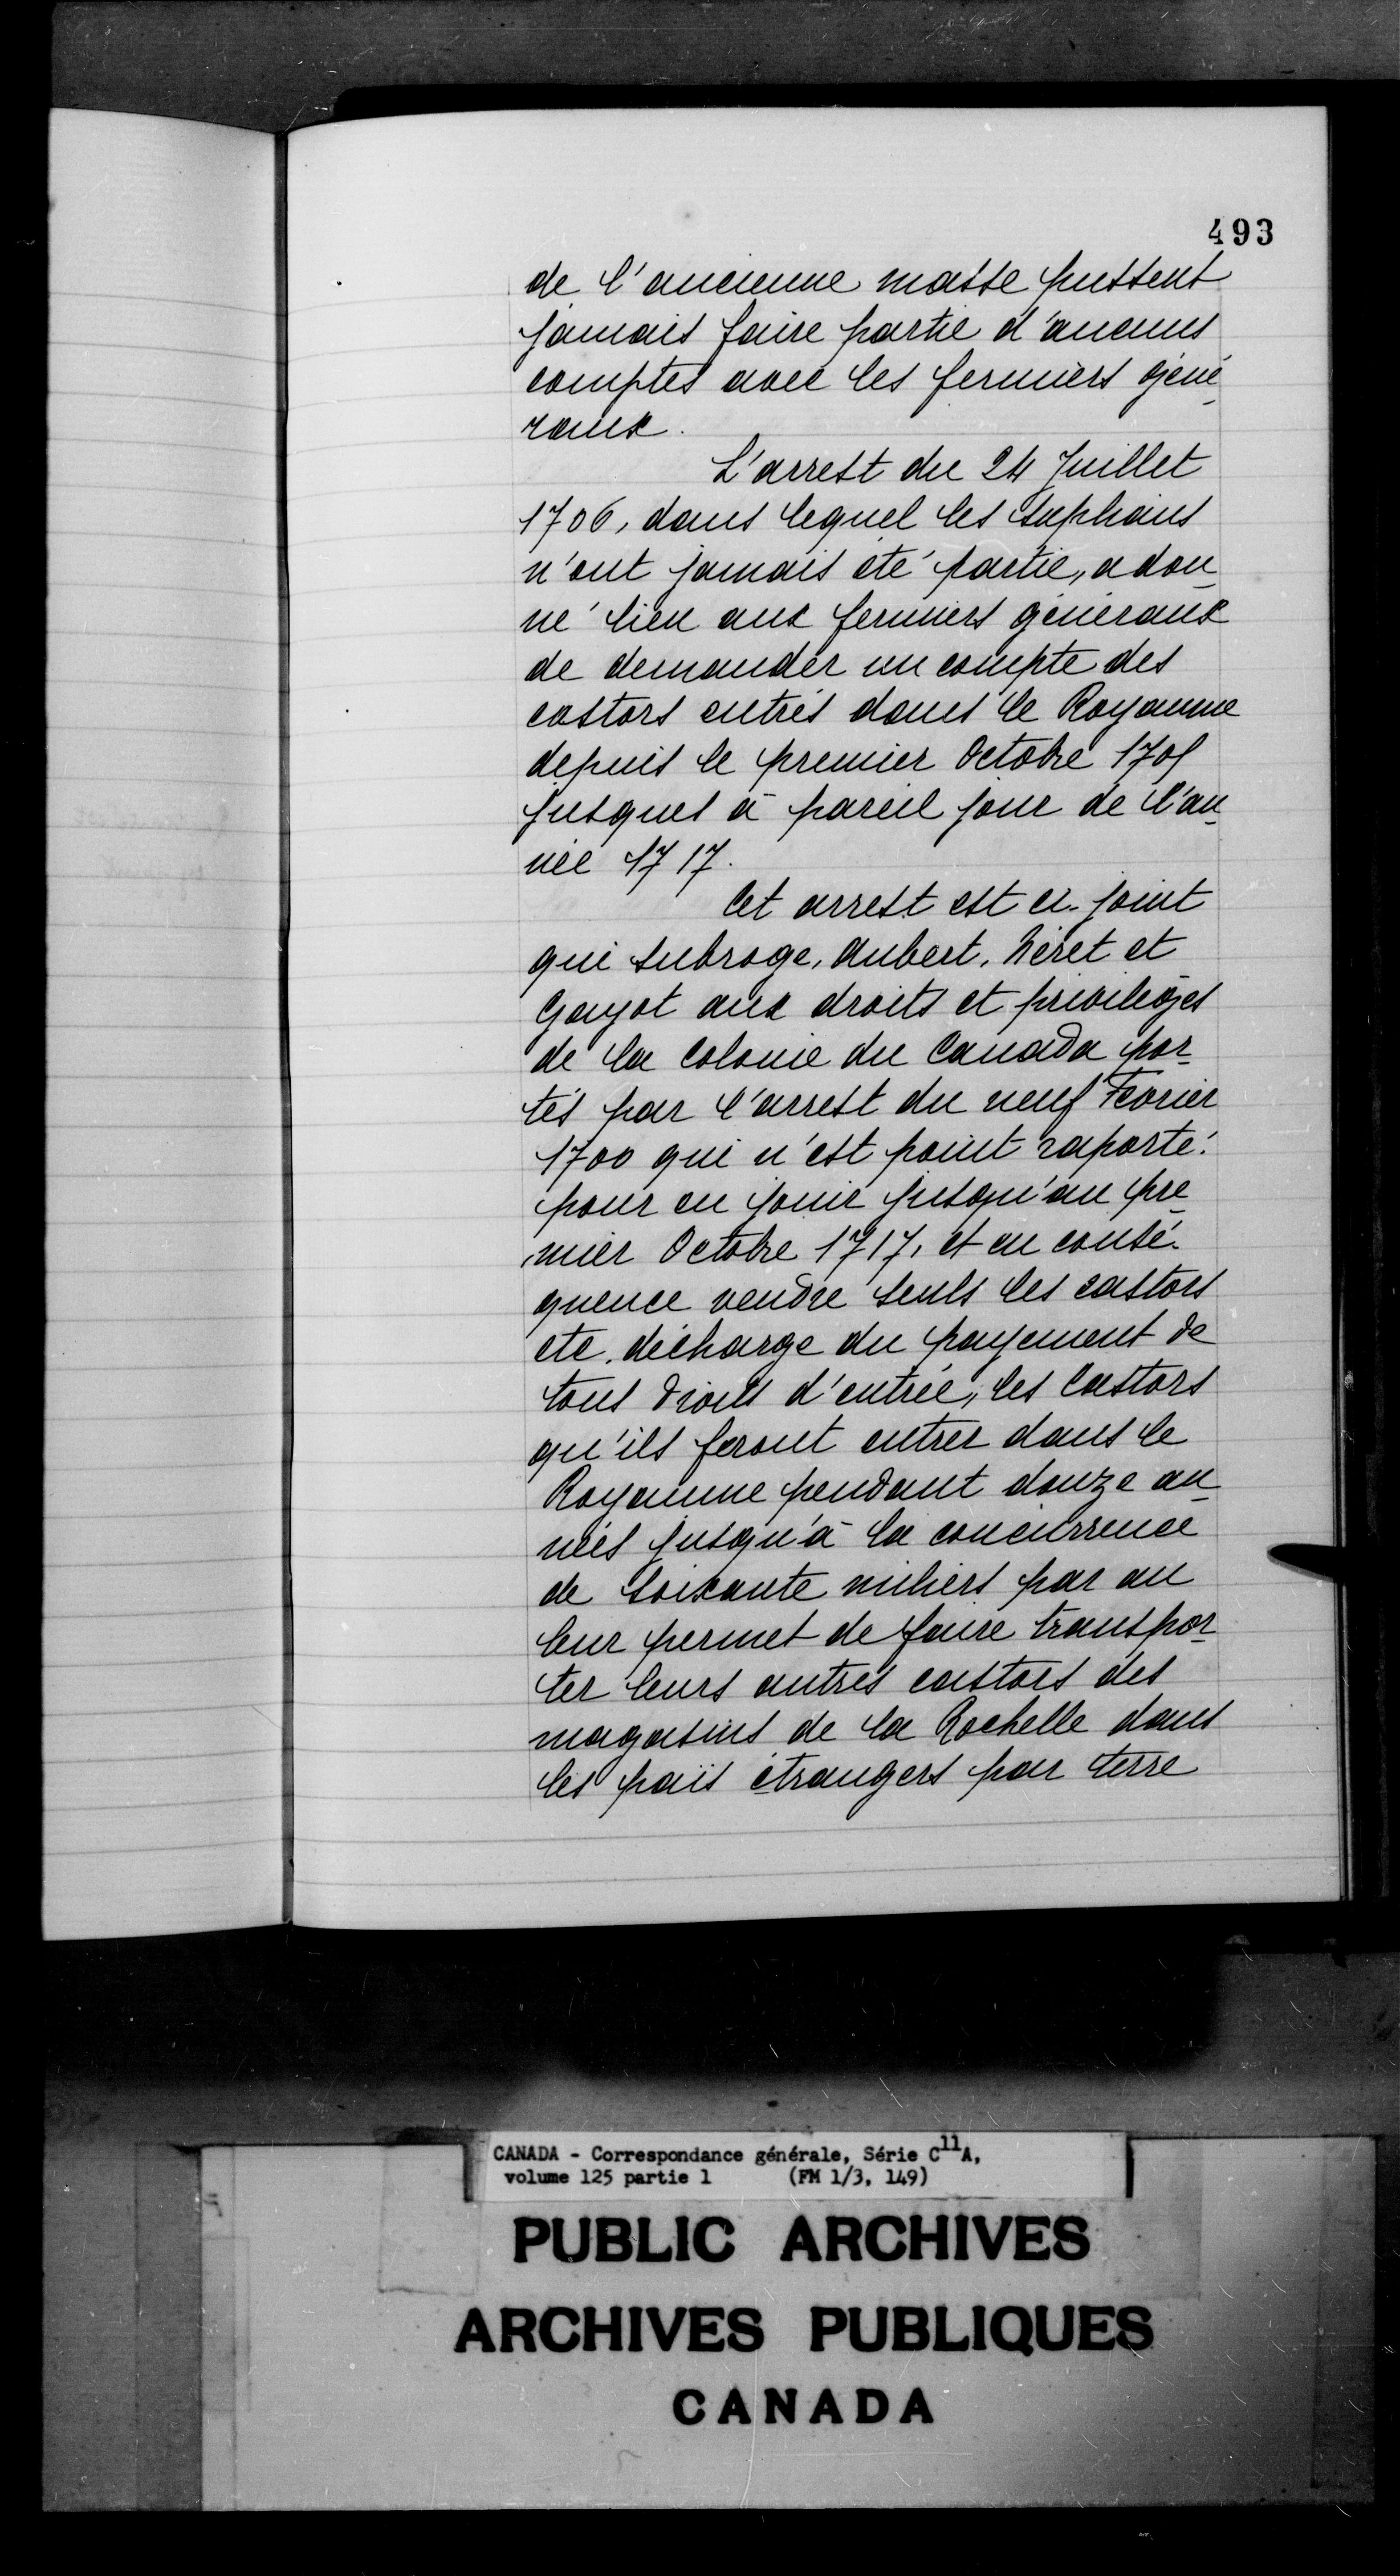 493
de l'ancienne masse pussent
jamais faire partie d'aucuns
comptes avec les fermiers géné-
raux.
L'arrest du 24 Juillet
1706, dans lequel les suplians
n'ont jamais été partie, a don-
né lieu aux fermiers généraux
de demander un compte des
castors entrés dans le Royaume
depuis le premier Octobre 1705
jusques à pareil jour de l'an-
née 1717.
Cet arrest est ci-joint
qui subroge, Aubert, Néret et
Gayot aux droits et privilèges
de la Colonie du Canada por-
tés par l'arrest du neuf Fevrier
1700 qui n'est point raporté:
pour en jouir jusqu'au pre-
mier Octobre 1717, et en consé-
quence vendre seuls les castors
etc. décharge du payement de
tous droits d'entrée, les Castors
qu'ils feront entrer dans le
Royaume pendant douze an-
nées jusqu'à la concurrence
de soixante miliers par an
leur permet de faire transpor-
ter leurs autres castors des
magasins de la Rochelle dans
les païs étrangers par terre
CANADA - Correspondance générale, Série C11A,
volume 125 partie 1 (FM 1/3, 149)
PUBLIC ARCHIVES
ARCHIVES PUBLIQUES
CANADA